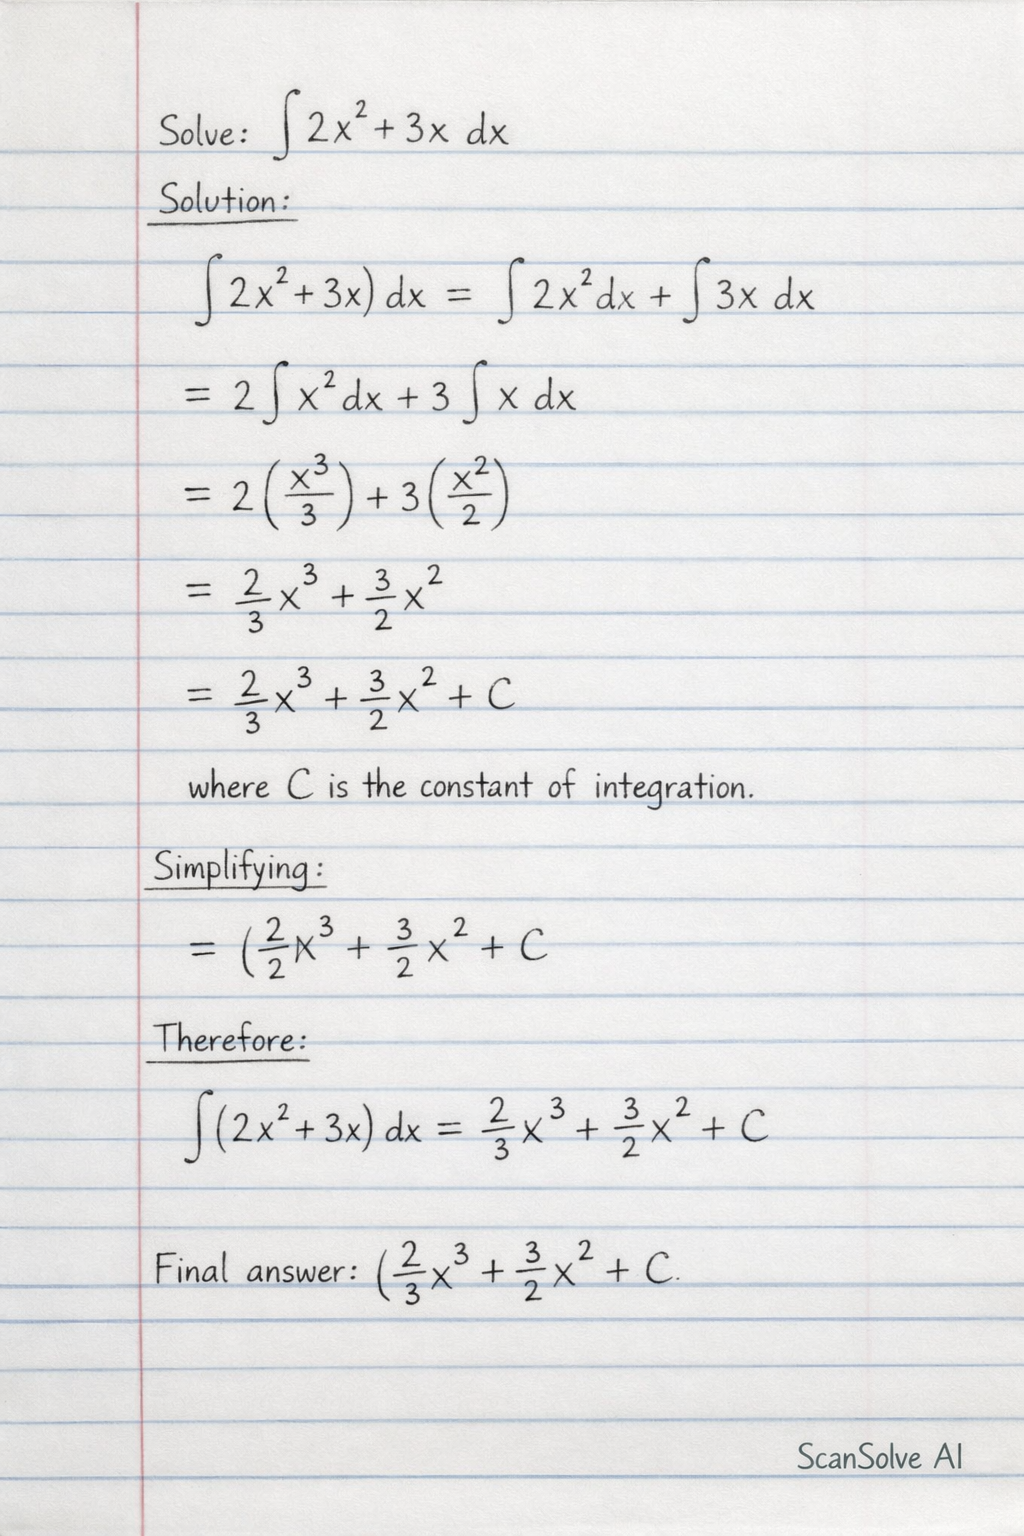 Solve: ∫ 2x² + 3x dx
Solution:
∫ 2x² + 3x) dx = ∫ 2x² dx + ∫ 3x dx
= 2 ∫ x² dx + 3 ∫ x dx
= 2 (x³/3) + 3 (x²/2)
= 2/3 x³ + 3/2 x²
= 2/3 x³ + 3/2 x² + C
where C is the constant of integration.
Simplifying:
= (2/2 x³ + 3/2 x² + C
Therefore:
∫ (2x² + 3x) dx = 2/3 x³ + 3/2 x² + C
Final answer: (2/3 x³ + 3/2 x² + C.
ScanSolve AI